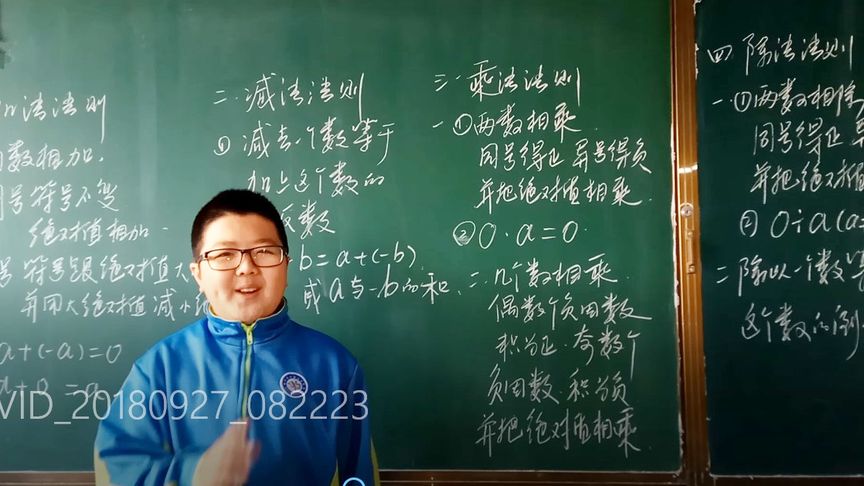 加法法则
数相加,
号符号不变
绝对值相加.
号符号跟绝对值大
并用大绝对值减小绝
a+(-a)=0
二.减法法则
①减去一个数等于
加上这个数的
反数
b=a+(-b)
或a与-b的和.
三.乘法法则
一①两数相乘.
同号得正异号得负
并把绝对值相乘.
②0·a=0.
二.几个数相乘.
偶数个负因数
积为正.奇数个
负因数,积为负
并把绝对值相乘.
四.除法法则
一①两数相除
同号得正异
并把绝对值
②0÷a(a
二除以一个数等
这个数的倒
VID_20180927_082223